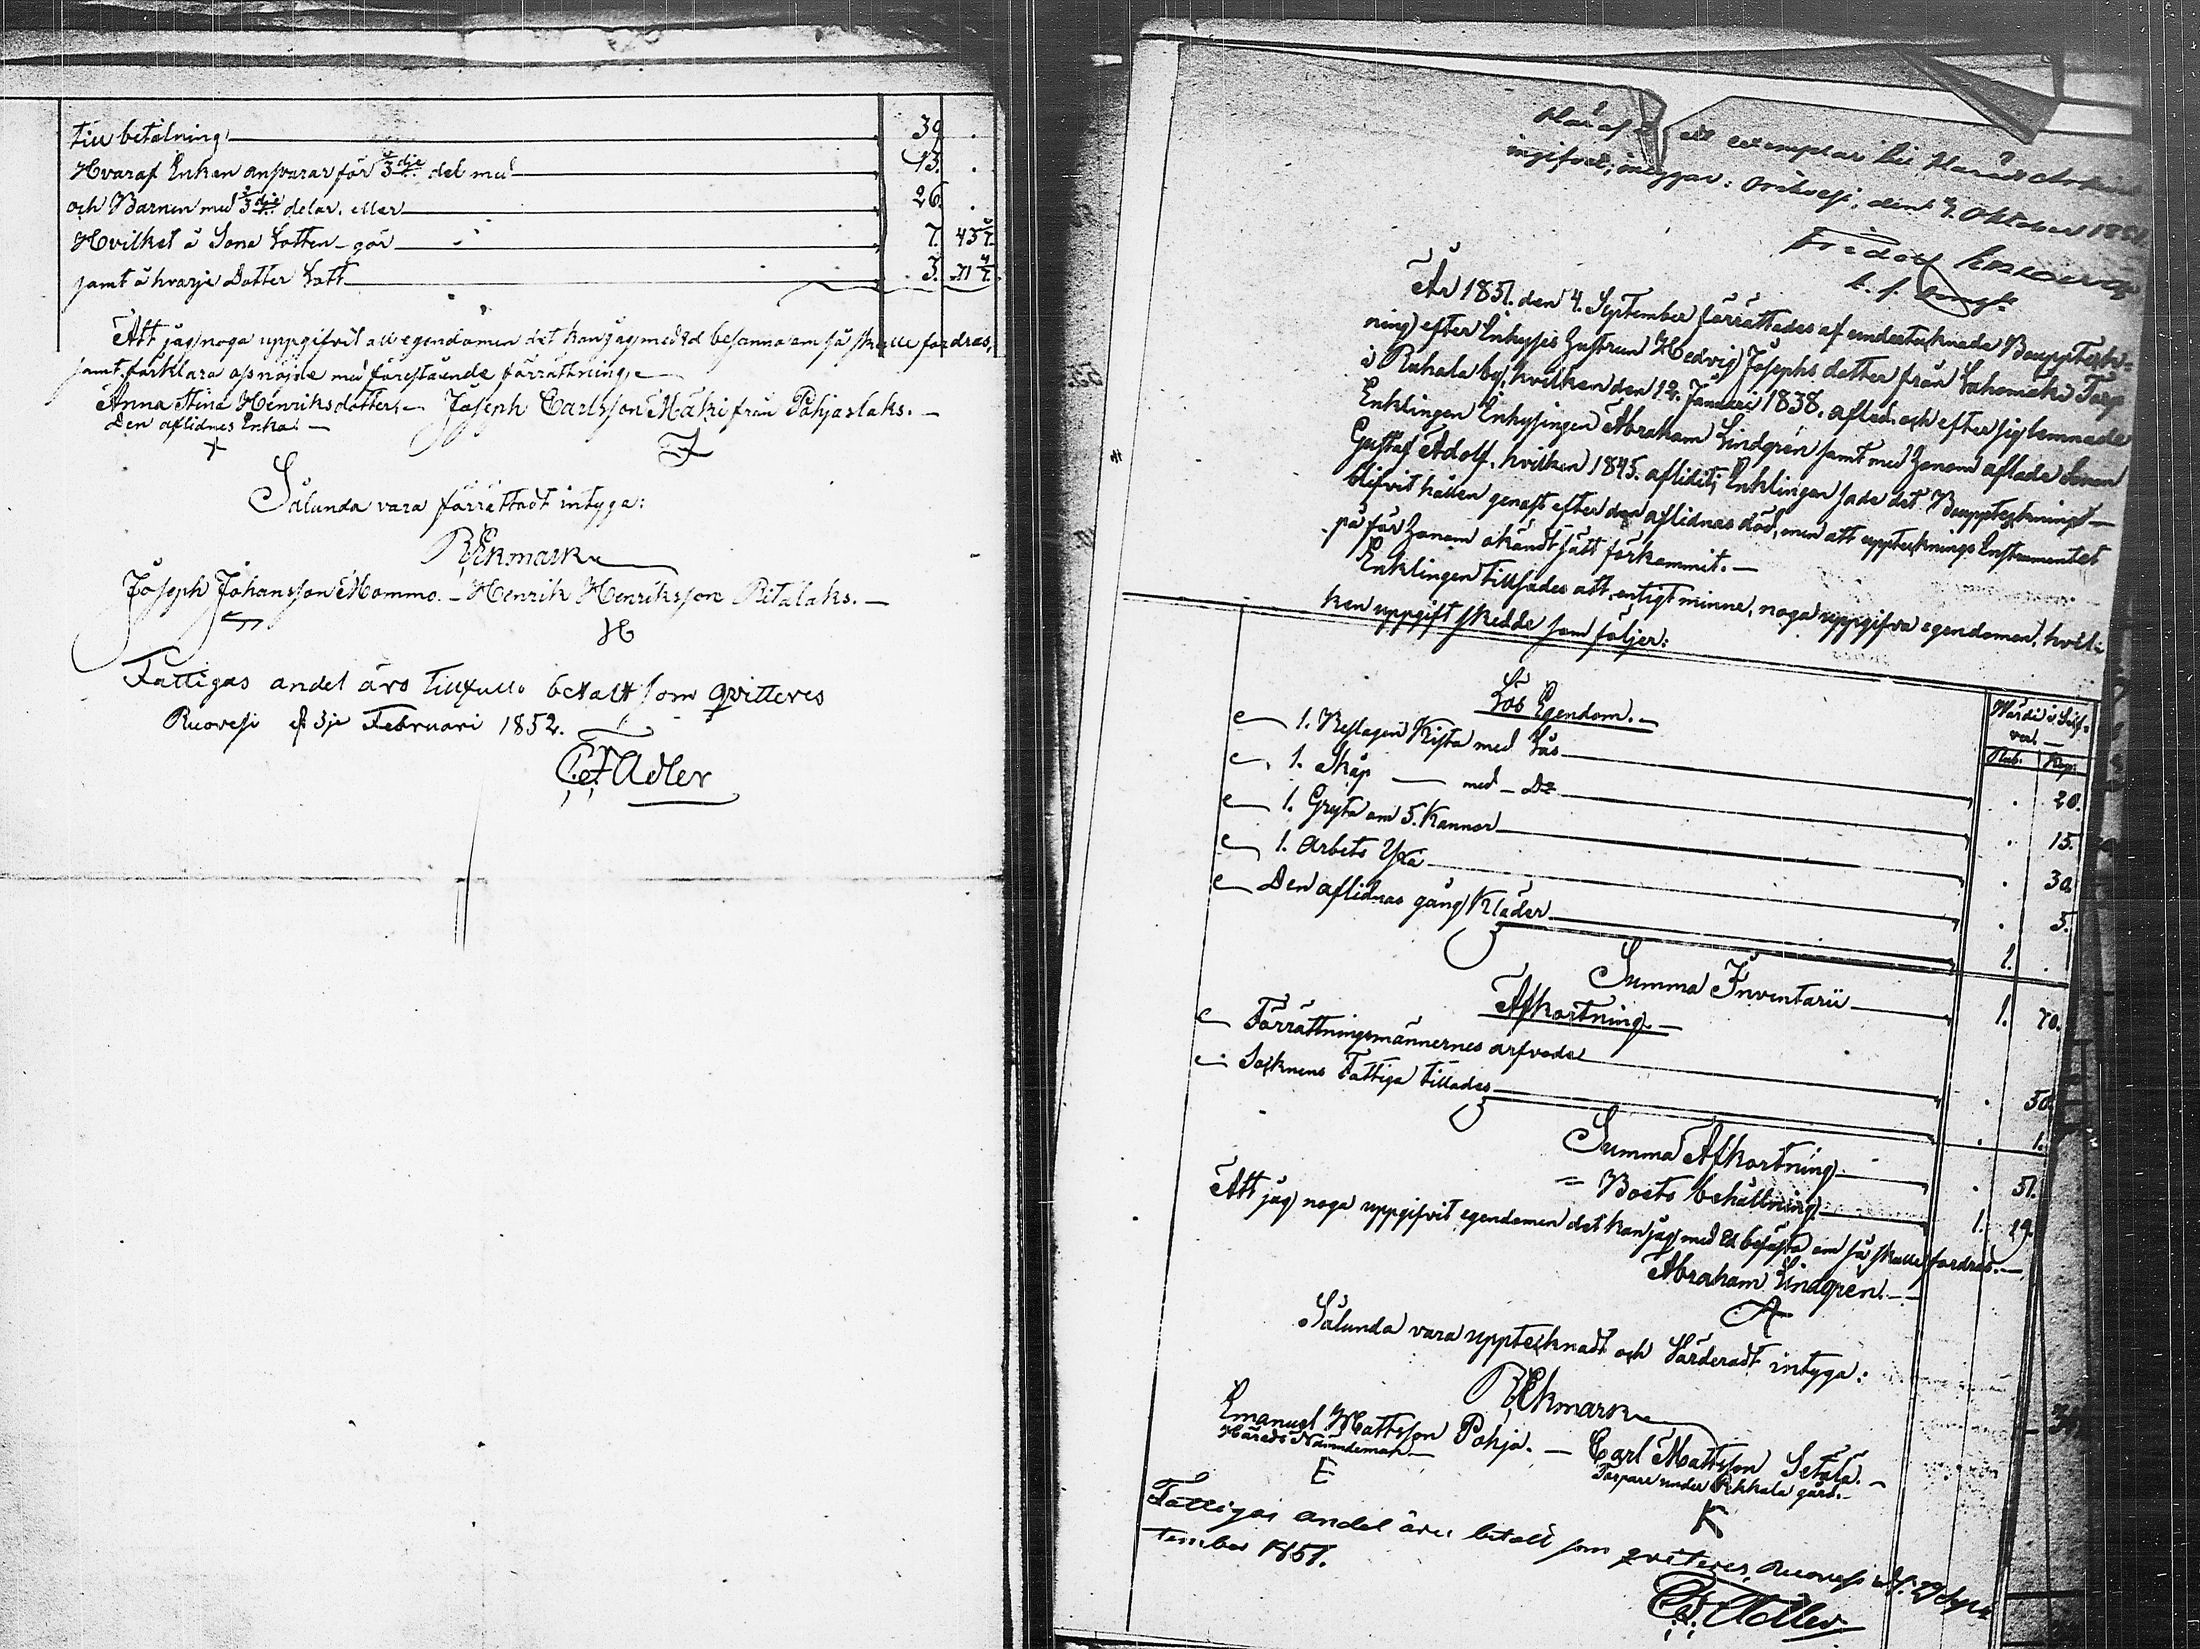 till betalning 39 .
Hvaraf Enkan ansvarar för 1/3dje del med 13. .
och Barnen med 2/3dje delar, eller 26. .
Hvilket å Sona Lotten gör 7. 43 1/7.
samt å hvarje Dotter Lott 3. 71 4/7.
Att jag noga uppgifvit all egendomen det kan jag med Ed besanna om så skulle fordras,
samt förklara oss nöjde med förestående förrättning,
Anna Stina Henriksdotter, Joseph Carlsson Mäki från Pohjaslaks.
Den aflidnes Enka.
Sålunda vara förrättadt intyga:
REkmark
Joseph Johansson Mommo. Henrik Henriksson Ritalaks.
H
Fattigas andel ärs tillfullo betalt som qvitteres
Ruovesi d 3je Februari 1852.
C.A. Adler
Häraf ett exemplar till Härads Arkivet
ingifvet; intygar: Orihvesi, den 7. Oktober 1851.
Fridolf
År 1851. den 4. September förrättades af undertecknade Bouppteck-
ning efter Inhyses Hustrun Hedvig Josephs dotter från Lahomäki Torp
i Ruhala by, hvilken den 12. Januari 1838. afled och efter sig lemnade
Enklingen Inhysingen Abraham Lindgrén samt med honom aflade Sonen
Gustaf Adolf, hvilken 1845. aflidit; Enklingen sade det Bouppteckning
blifvit hållen genast efter den aflidnas död, men att uppteckningsInstrumentet
på för honom okändt sätt förkommit.
Enklingen tillsades att, enligt minne, noga uppgifva egendomen, hvil-
ken uppgift skedde som följer:
Wärde i Silf-
ver.
Lös Egendom. Rub. Kop.
1. Beslagen Kista med Lås . 20.
1. Skåp med Do . 15.
1. Gryta om 5. Kannor . 30.
1. Arbets Yxa . 5.
Den aflidnas gång Kläder 1. .
Summa Inventarii 1. 70.
Afkortning.
Förrättningsmännernes arfvode . 50.
Socknens Fattiga tillades . 1.
Summa Afkortning . 51.
= Boets behållning 1. 19.
Att jag noga uppgifvit egendomen det kan jag med Ed besästa om så skulle fordras.
Abraham Lindgren.
A
Sålunda vara upptecknadt och Värderadt intyga:
REkmark
Emanuel Mattsson Pohja. Carl Mattsson Setälä.
Härads Nämndeman Torpare under Pekkala gård.
E
K
Fattigas andel ärs betalt som qvitteres, Ruovesi
tember 1851.
C.A. Adler